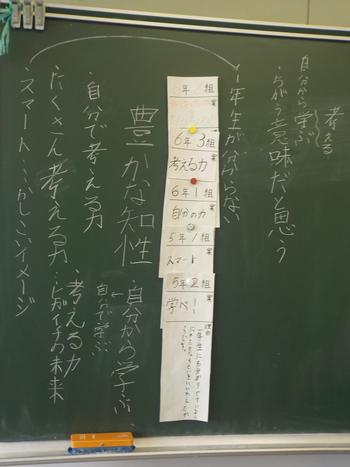 考える
自分から学ぶ
ちがう意味だと思う
1年生が分からない
年 組
案
6年3組
案
考える力
6年1組
案
自分の力
5年1組
案
スマート
5年2組
案
学べ!
理由
豊かな知性
・自分から学ぶ
自分で学ぶ
・自分で考える力
・考える力
たくさん考える力
スマート…かしこいイメージ